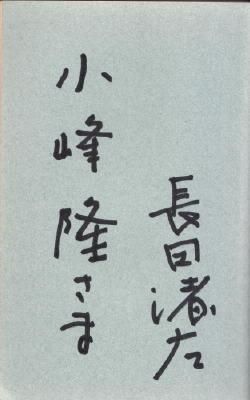 小峰隆さま
長田渚左